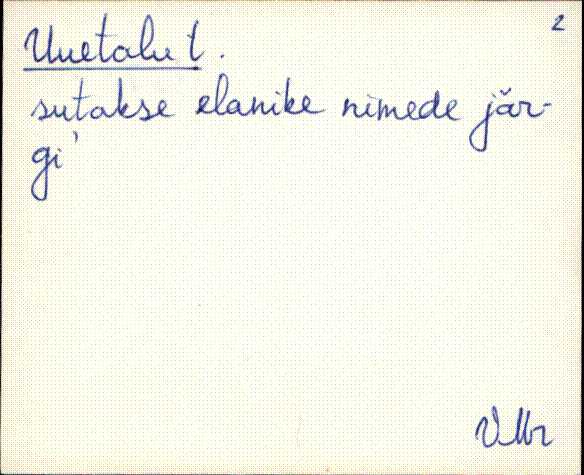 2
Uuetalu t.
sutakse elanike nimede jär-
gi'
VMr